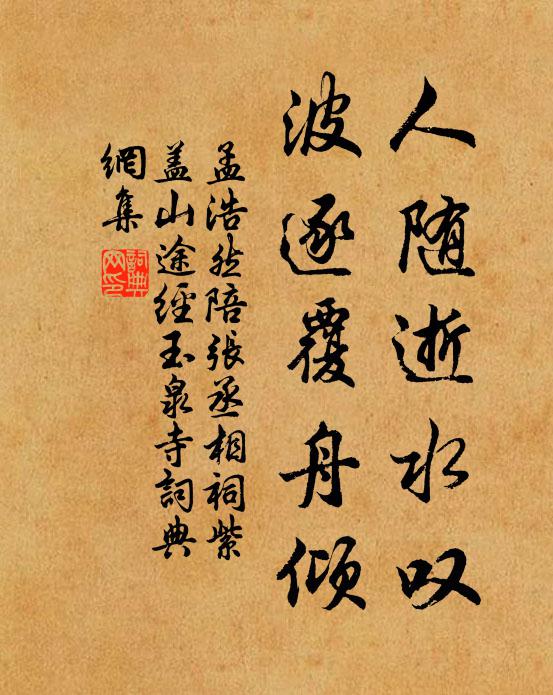 人随逝水叹
波逐覆舟倾
孟浩然陪張丞相祠紫
盖山途經玉泉寺詞典
網集
詞典
网印